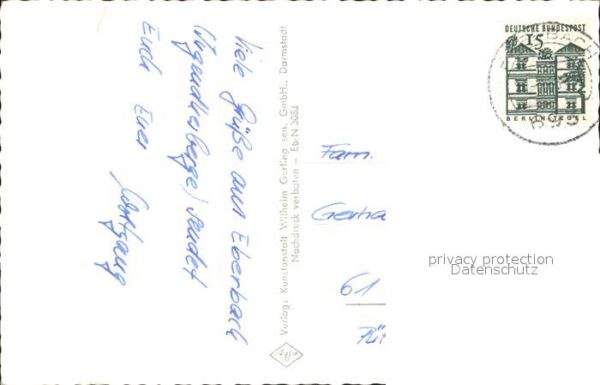 Viele Grüße aus Eberbach
(Jugendherberge) sendet
Euch Euer
Wolfgang
Verlag: Kunstanstalt Wilhelm Gerling sen. GmbH., Darmstadt
Nachdruck verboten – Eb-N 5083
Agfa
DEUTSCHE BUNDESPOST
15
BERLIN-TEGEL
Fam.
Gerha
61
privacy protection
Datenschutz